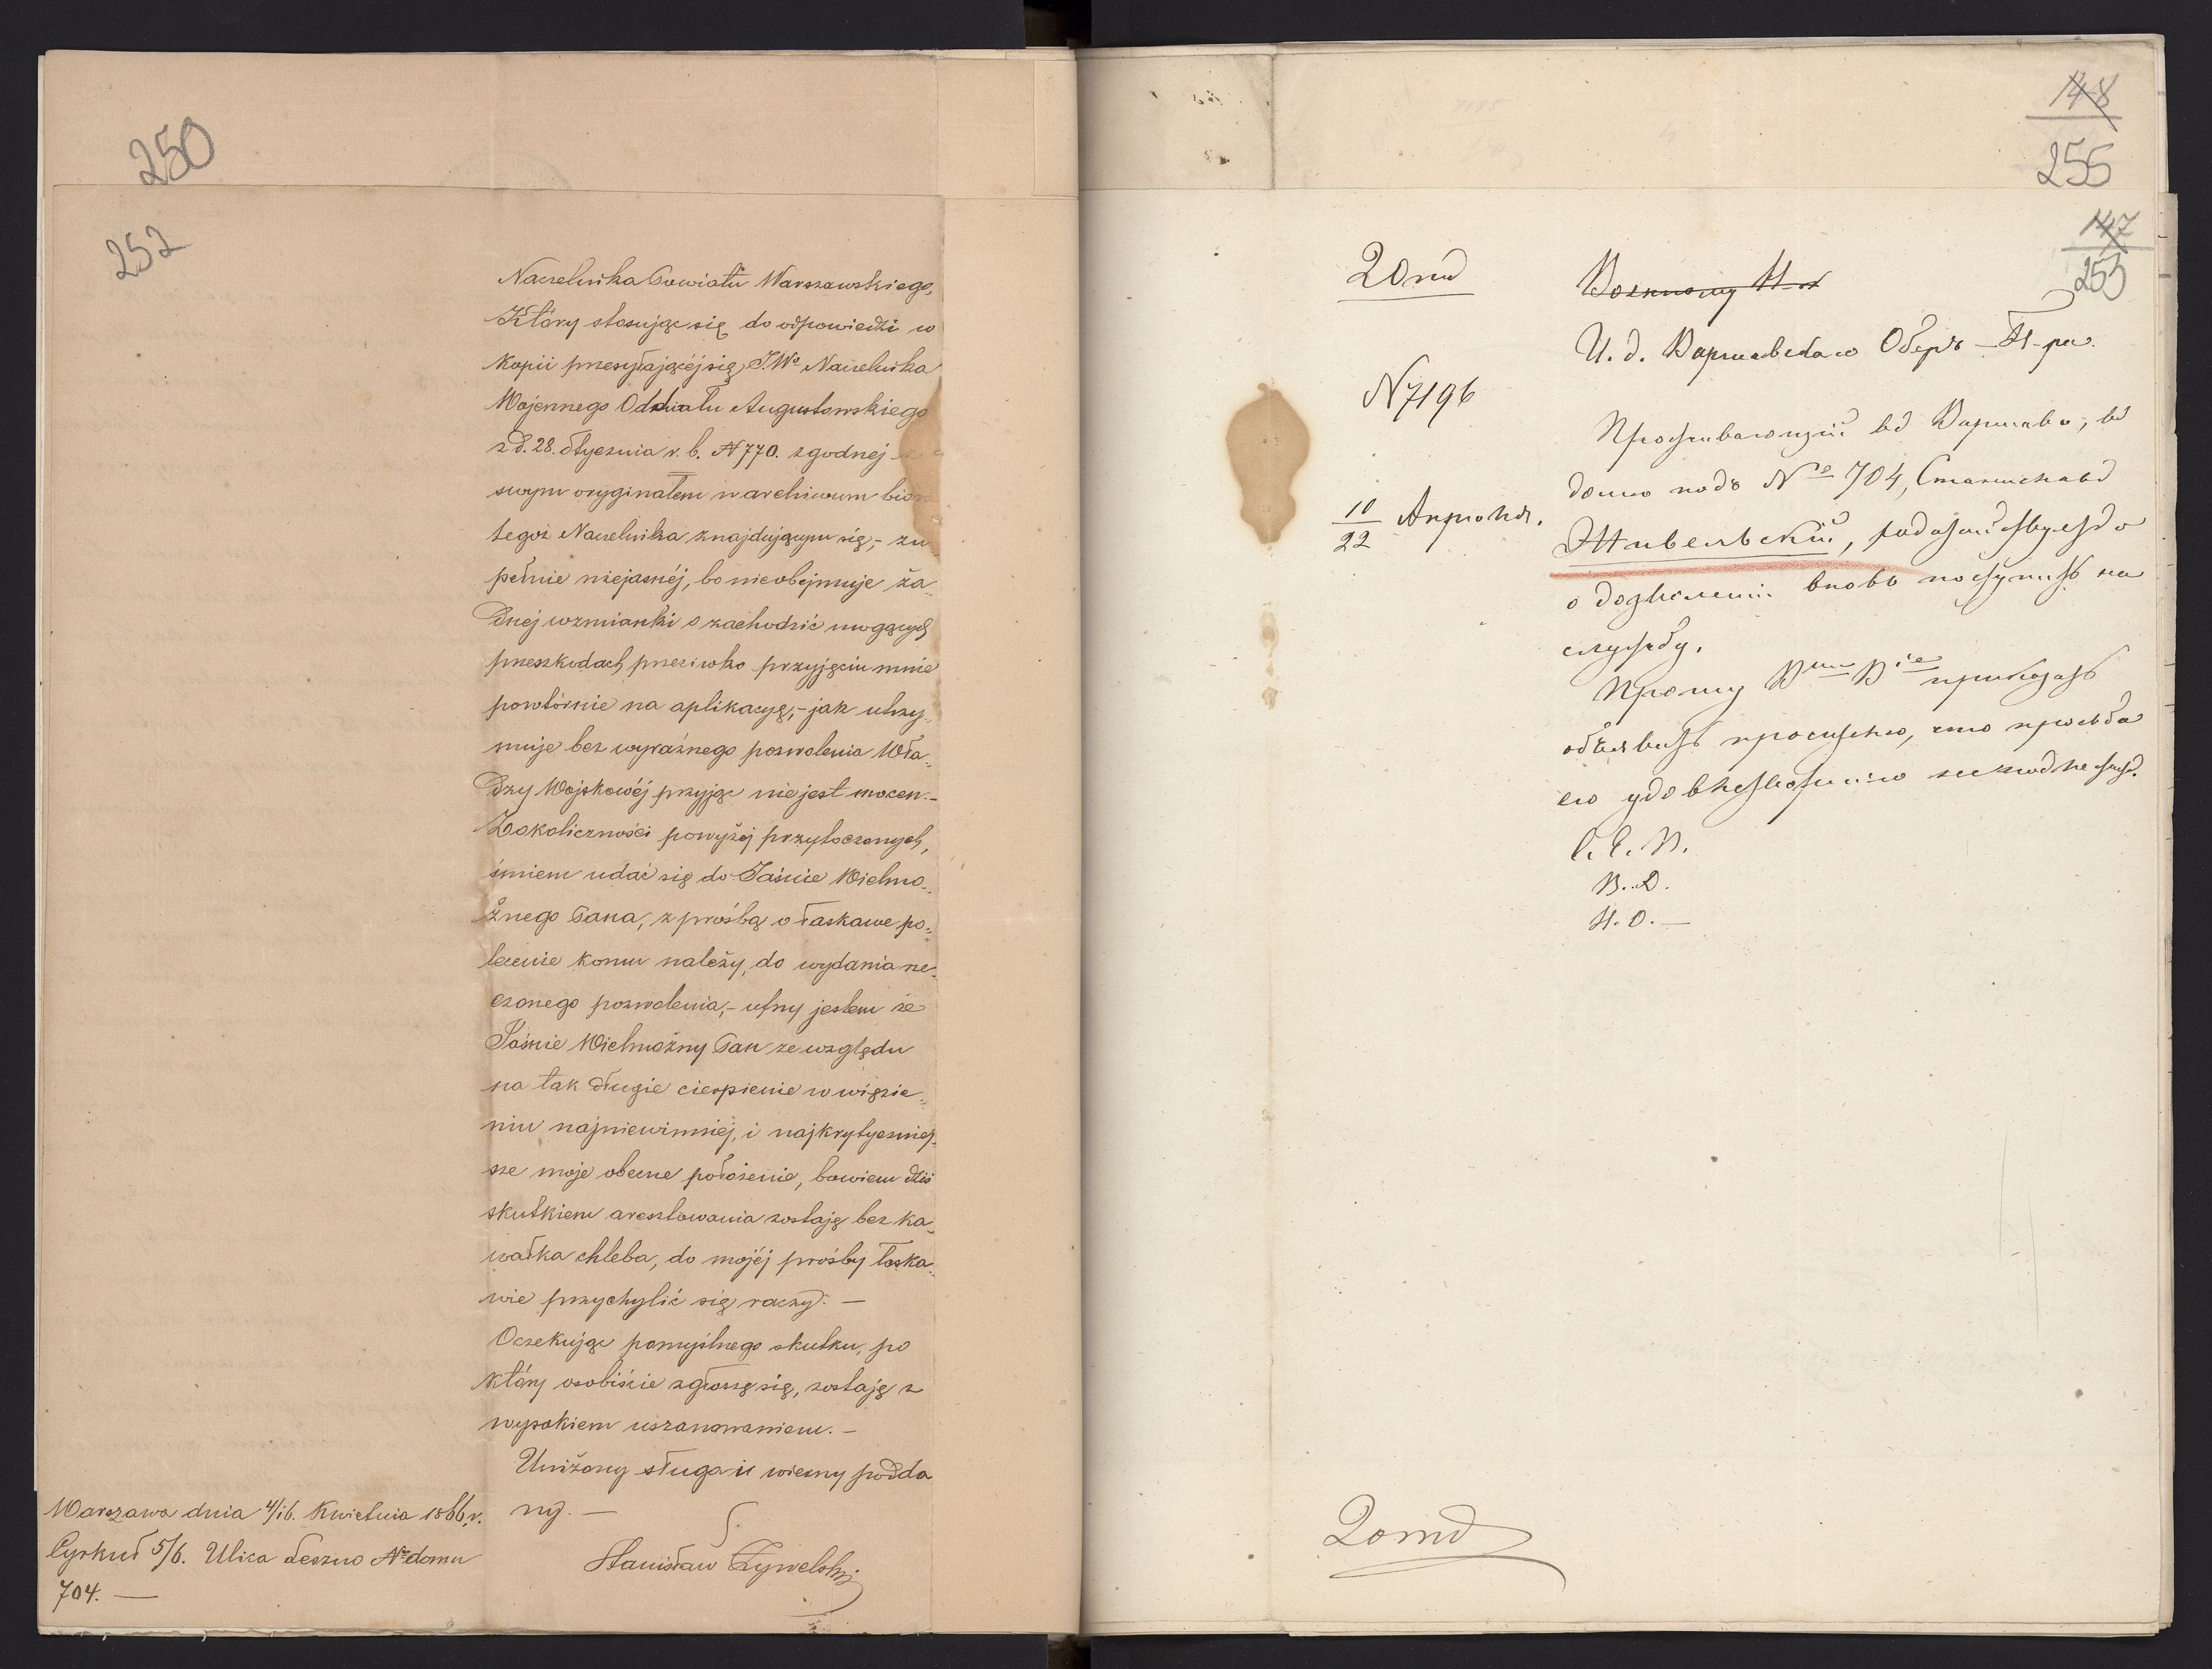 250
252
Naczelnika Powiatu Warszawskiego,
Który stosując się do odpowiedzi w
kopii przesyłającéj się, J.Wo Naczelnika
Wojennego Oddziału Augustowskiego
z d. 28. Stycznia r. b. N 770. zgodnej z
swym oryginałem w archiwum biór
tegoż Naczelnika znajdującym się,- zu
pełnie niejasnéj, bo nie obejmuje ża„
dnej wzmianki o zachodzić mogących
przeszkodach przeciwko przyjęciu mnie
powtórnie na aplikacyę,- jak utrzy„
muje bez wyraźnego pozwolenia Wła„
dzy Wojskowéj przyjąć nie jest mocen.-
Z okoliczności powyżéj przytoczonych,
śmiem udać się do Jaśnie Wielmo„
żnego Pana, z prośbą o łaskawe po„
lecenie komu należy, do wydania rze„
czonego pozwolenia,- ufny jestem że
Jaśnie Wielmożny Pan ze względu
na tak długie cierpienie w więzie„
niu najniewinniéj, i najkrytyczniej„
sze moje obecne położenie, bowiem dziś
skutkiem aresztowania zostaję bez ka„
wałka chleba, do mojéj prośby łaska„
wie przychylić się raczy. —
Oczekując pomyślnego skutku, po
który osobiście zgłoszę się, zostaję z
wysokiem uszanowaniem. —
Uniżony sługa i wierny podda
ny. —
Stanisław Żywelski
Warszawa dnia 4/16. Kwietnia 1866. r.
Cyrkuł 5/6. Ulica Leszno No domu
704. —
148
255
147
253
2 Отд
N 7196
10/22 Апреля.
Военному Н-к
И. д. Варшавскаго Оберъ-П-ра.
Проживающій въ Варшаве, въ
доме подъ No 704, Станиславъ
Живельскій, ходатайствуетъ
о дозволеніи вновь поступить на
службу.
Прошу В В іе приказать
объявить просителю, что просьба
его удовлетворенію не подлежитъ.
С. Е. В.
В. Д.
Н. О. —
2 отд